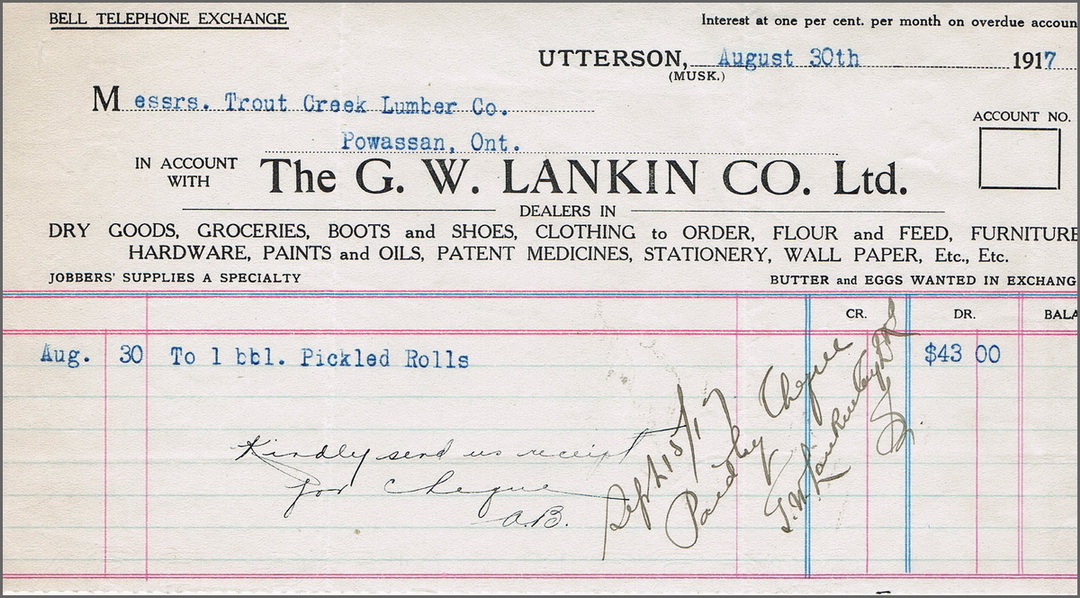 BELL TELEPHONE EXCHANGE
Interest at one per cent. per month on overdue accoun
UTTERSON, August 30th 1917
(MUSK.)
Messrs. Trout Creek Lumber Co.
Powassan, Ont.
ACCOUNT NO.
IN ACCOUNT WITH The G. W. LANKIN CO. Ltd.
DEALERS IN
DRY GOODS, GROCERIES, BOOTS and SHOES, CLOTHING to ORDER, FLOUR and FEED, FURNITURE
HARDWARE, PAINTS and OILS, PATENT MEDICINES, STATIONERY, WALL PAPER, Etc., Etc.
JOBBERS' SUPPLIES A SPECIALTY
BUTTER and EGGS WANTED IN EXCHANG
CR. DR. BALA
Aug. 30 To 1 bbl. Pickled Rolls $43 00
Kindly send us receipt
for cheque
A.B.
Sept 15/17
Paid by Cheque